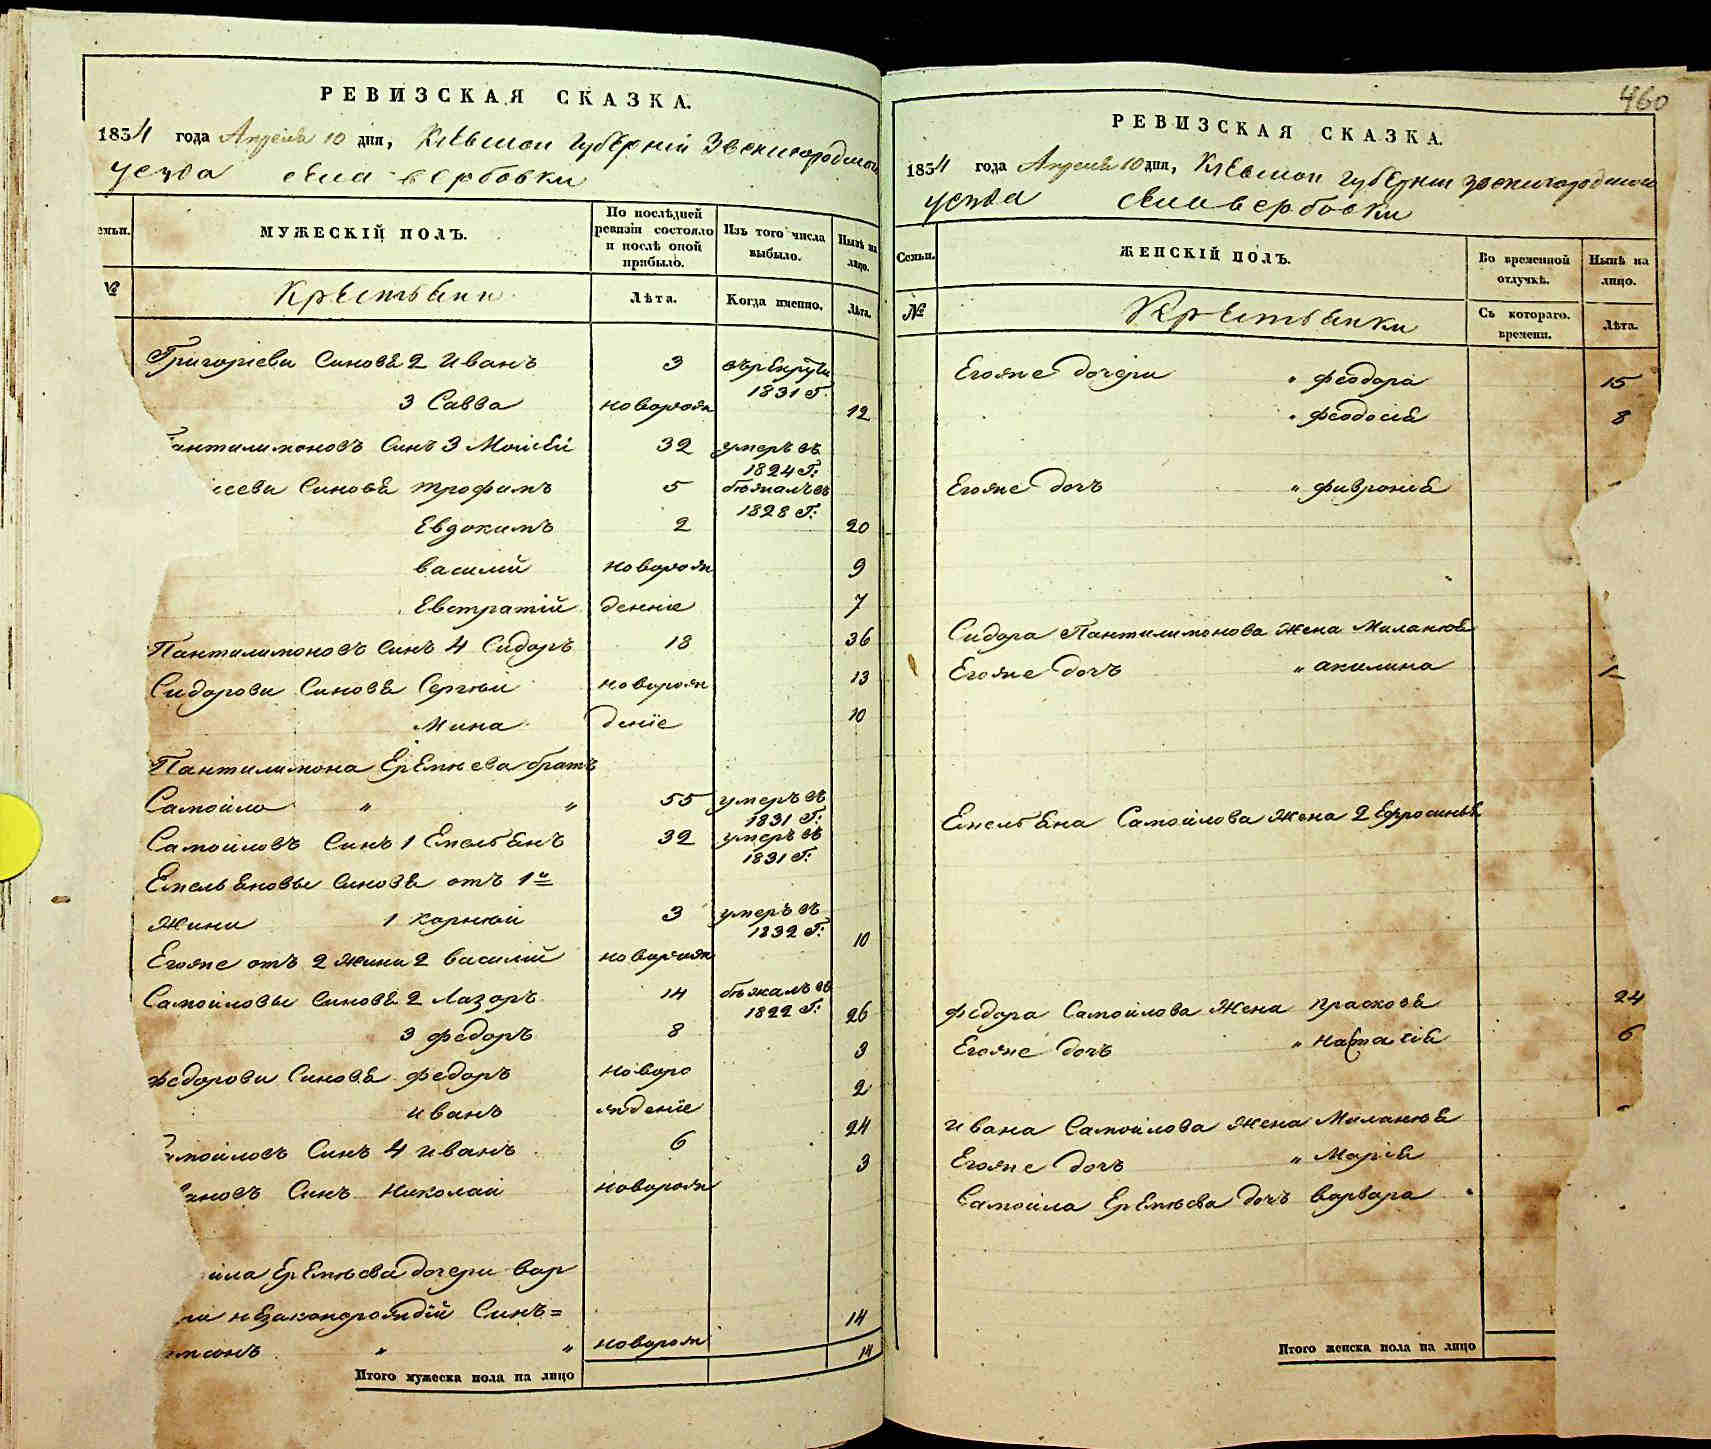 РЕВИЗСКАЯ СКАЗКА.
1834 года Апреля 10 дня, Киевской губернии Звенигородского
уезда села Вербовки
МУЖЕСКІЙ ПОЛЪ.
По послѣдней ревизіи состояло и послѣ оной прибыло.
Изъ того числа выбыло.
Нынѣ на лицо.
№ Крестьяни Лѣта. Когда именно. Лѣта.
Григоріеви Синовя 2 Иванъ 3 въ рекруты 1831 Г.
3 Савва новорож 12
антилимоновъ Синъ 3 Моисей 32 умеръ въ 1824 Г:
сееви Синовя Трофимъ 5 бѣжалъ въ 1828 Г:
Евдокимъ 2 20
василій новорож 9
Евстратій денніе 7
Пантилимоновъ Синъ 4 Сидоръ 18 36
Сидорови Синовя Сергѣй новорож 13
Мина деніе 10
Пантилимона Еремѣева братъ
Самойло " " 55 умеръ въ 1831 Г:
Самойловъ Синъ 1 Емельянъ 32 умеръ въ 1831 Г:
Емельяновы Синовя отъ 1й
Жини 1 Корнѣй 3 умеръ въ 1832 Г:
Егоже отъ 2 Жини 2 василій новорож 10
Самойловы Синовя 2 Лазоръ 14 бѣжалъ въ 1822 Г:
3 Федоръ 8 26
Федорови Синовя Федоръ новоро 3
Иванъ жденіе 2
амойловъ Синъ 4 Иванъ 6 24
ановъ Синъ Николай новорож 3
ила Еремѣева дочери Вар
ри незаконорождій Синъ=
мсонъ " " новорож 14
Итого мужеска пола на лицо 14
460
РЕВИЗСКАЯ СКАЗКА.
1834 года Апреля 10 дня, Киевской губернии Звенигородского
уезда Села Вербовки
Семьи. ЖЕНСКІЙ ПОЛЪ. Во временной отлучкѣ. Нынѣ на лицо.
№ Крестьянки Съ котораго времени. Лѣта.
Егоже дочери " Феодора 15
" Феодосія 8
Егоже дочъ " Фивронія
Сидора Пантилимонова жена Миланія
Егоже дочъ " акилина
Емельяна Самойлова жена 2 Ефросинья
Федора Самойлова Жена Прасковя 24
Егоже дочъ " Наталія 6
Ивана Самойлова жена Миланія
Егоже дочъ " Марія
Самойла Еремѣева дочъ Варвара
Итого женска пола на лицо